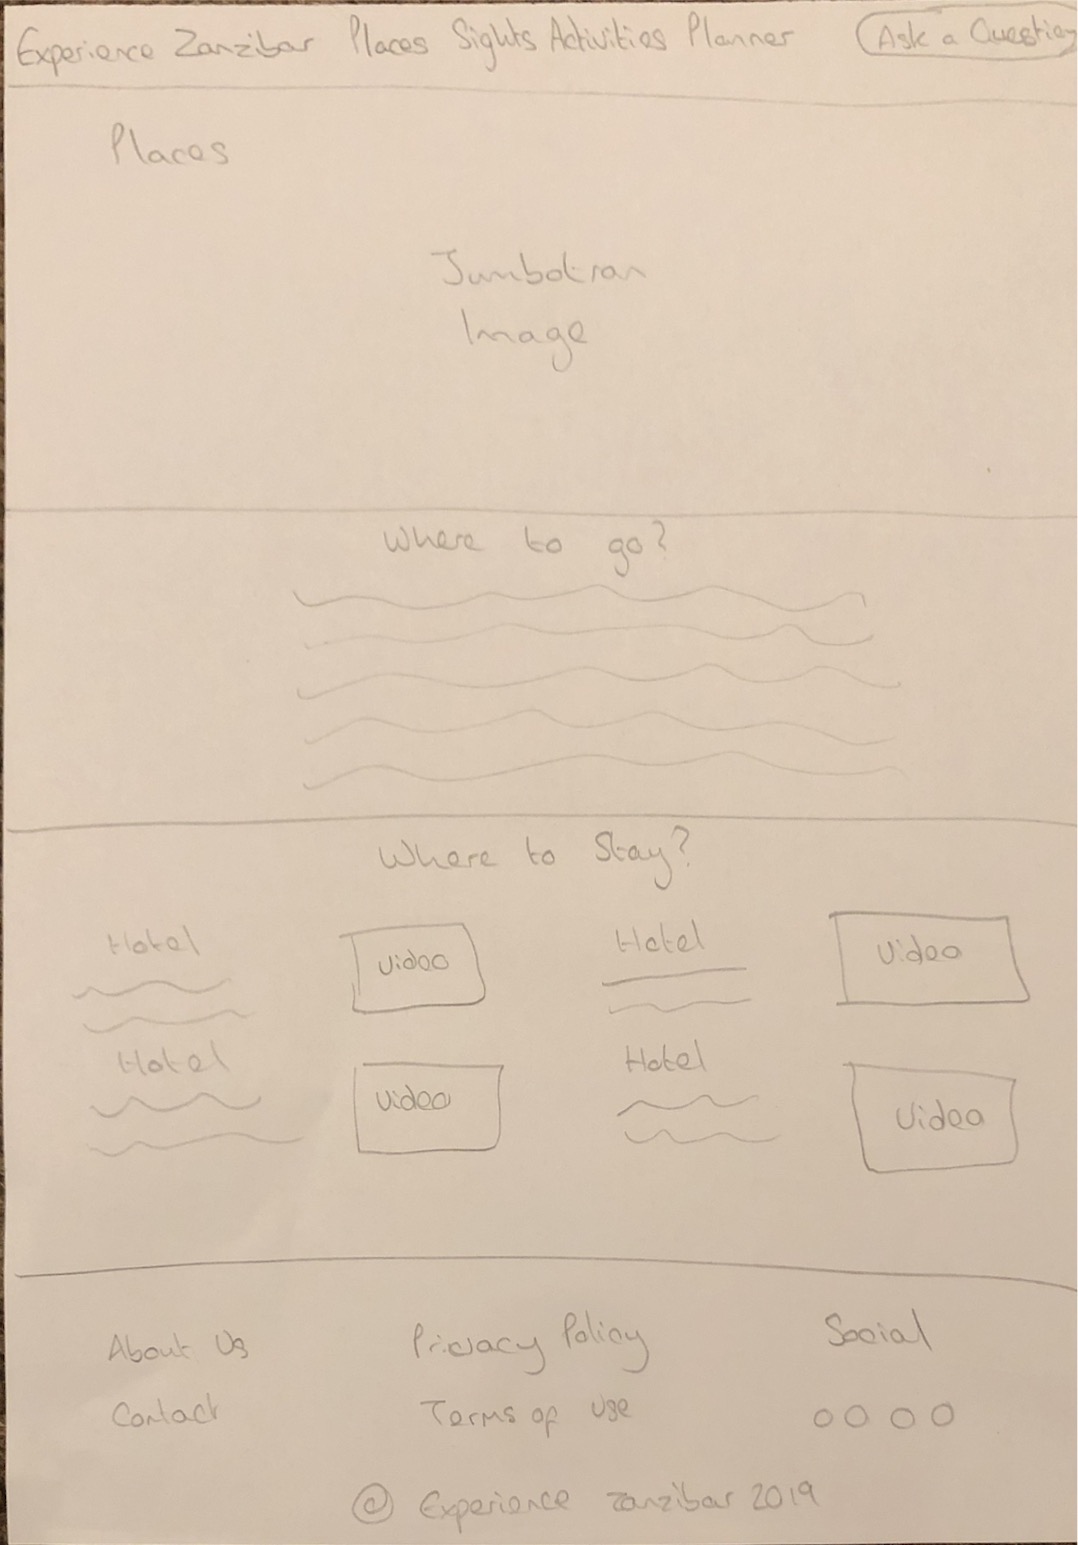 Experience Zanzibar Places Sights Activities Planner Ask a Question
Places
Jumbotran
Image
Where to go?
Where to Stay?
Hotel Video Hotel Video
Hotel Video Hotel Video
About Us Privacy Policy Social
Contact Terms of Use
© Experience Zanzibar 2019